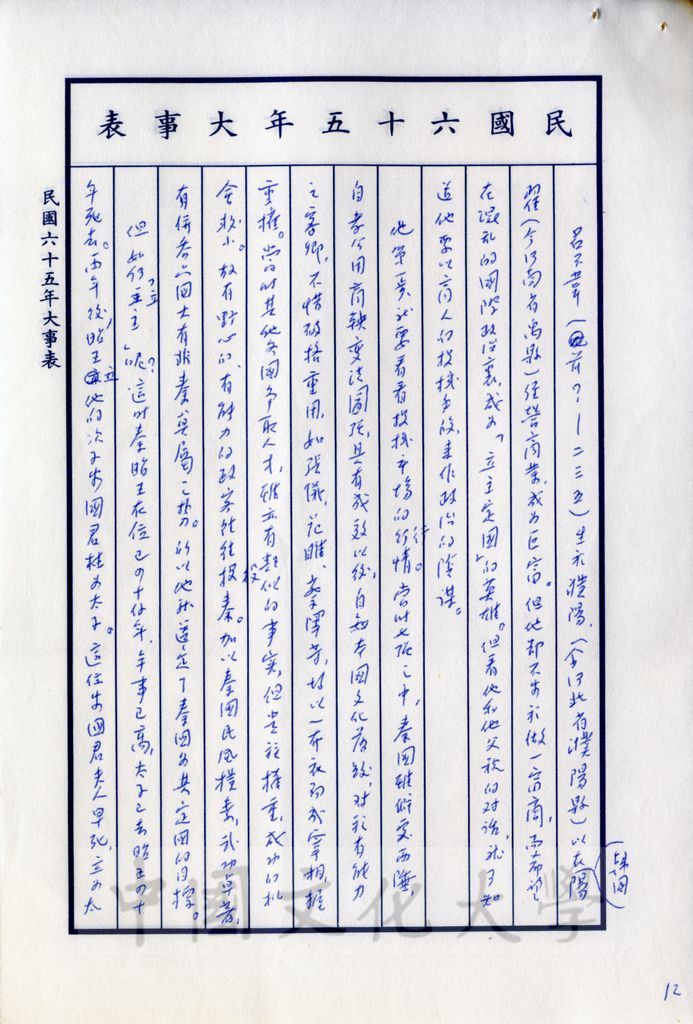 民國六十五年大事表
呂不韋(前?—二三五)生於濮陽,(今河北省濮陽縣)以在陽
翟(今河南省禹縣)經營商業,成為巨富。但他却不安於做一富商,而希望
在混亂的國際政治裏,成為「立主定國」的英雄。但看他和他父親的對話,就可知
道他要以商人的投機手段,來作政治的陰謀。
他第一步就要看看投機市場的行情。當時七雄之中,秦國雖僻處西陲,
自孝公用商鞅變法圖強,且有成效以後,自知本國文化落後,對於有能力
之客卿,不惜破格重用,如張儀、范雎、蔡澤等,皆以一介衣而成宰相,握
重權。當時其他各國爭取人才,雖亦有類似的事實,但畀於權重,成功的機
會較小。故有野心的、有能力的政客往往投秦。加以秦國民風樸素,武功卓著,
有併吞六國土有非秦莫屬之勢。所以他就選定了秦國為其定國的目標。
但如何「立主」呢?這時秦昭王在位已四十餘年,年事已高,太子已去昭王四十
年死去。兩年後,昭王立他的次子安國君柱為太子。這位安國君夫人早死,立為太
韓國
民國六十五年大事表
12
中國文化大學